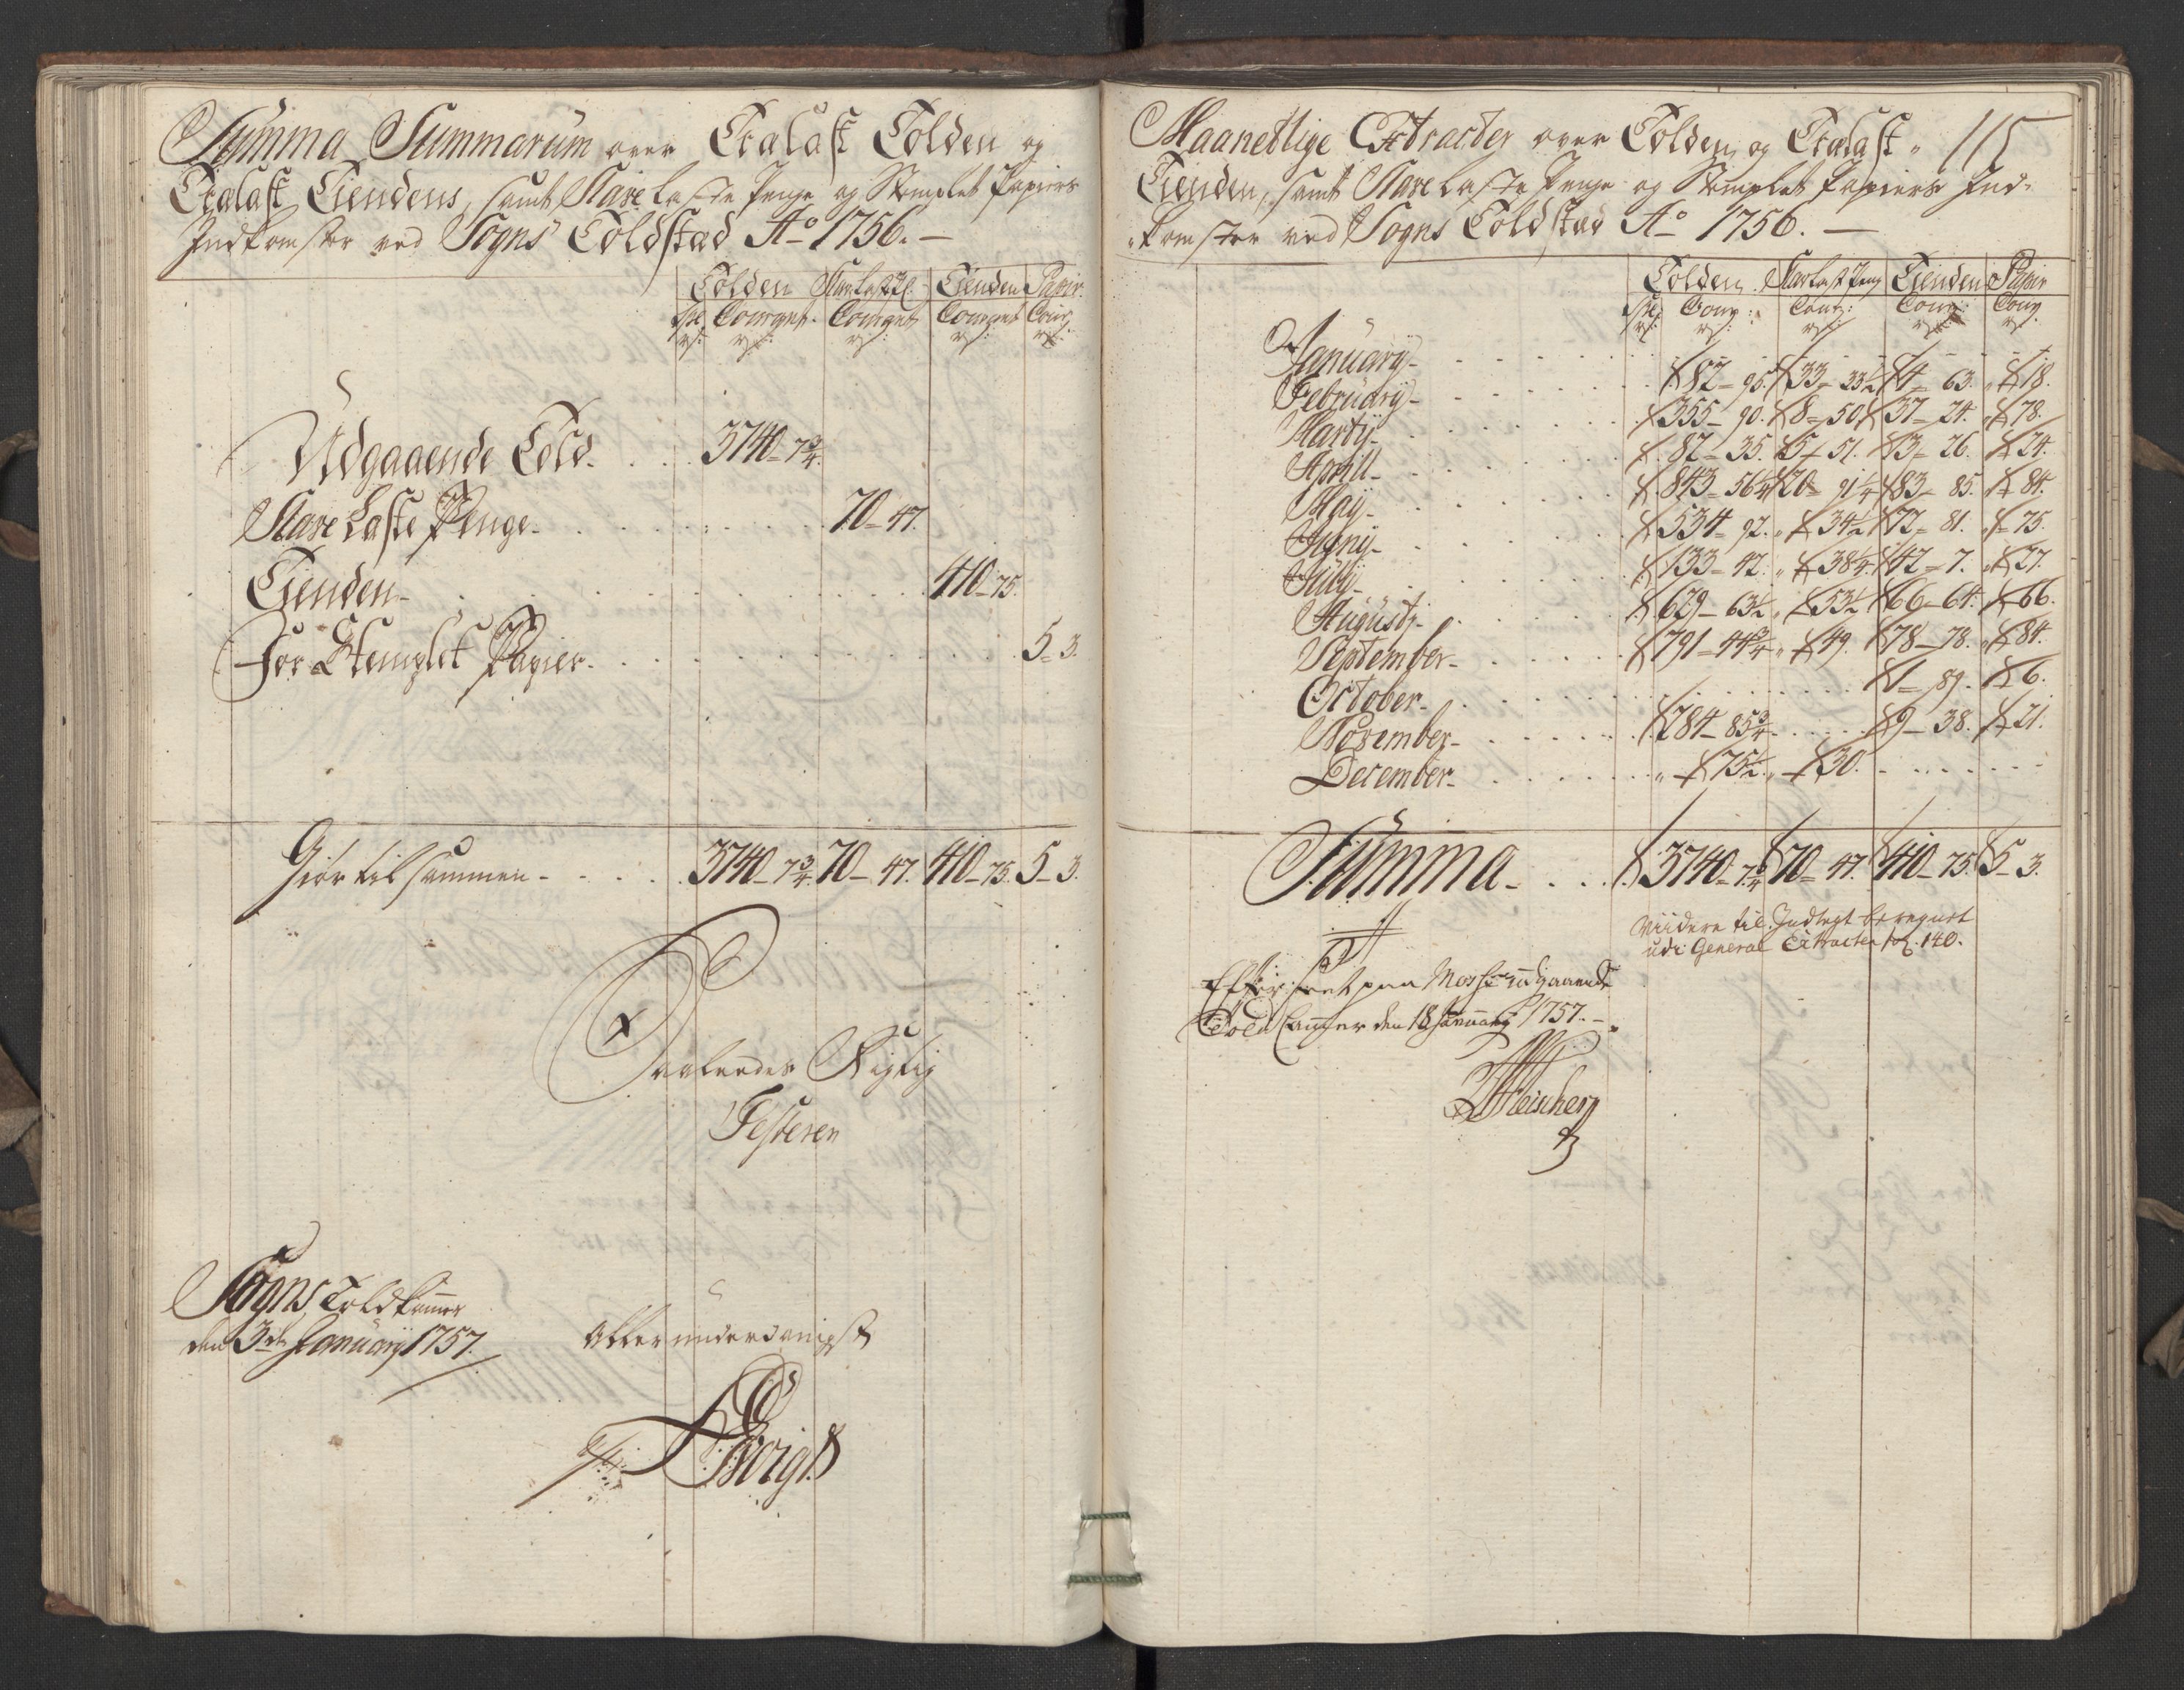 Summa Summarum over Tralast Tolden og
Tralast Tiendens, samt Slave Laste Penge og Stemplet Papiers
Indkomster ved Sogns Toldstæd Ao 1756.
Tolden Tienden Papir
Courant Courant Courant Cour
Udgaaende Told 3740 - 7 3/4
Slave Laste Penge 70 - 47.
Tienden 410 - 75.
For Stemplet Papier 5 - 3.
Giør tilsammen 3740 - 7 3/4. 70 - 47. 410 - 75. 5 - 3.
Saaledes Rigtig
Testerer
Sogns Toldkammer
den 3de January 1757.
Allerunderdanigst
Maanedlige Extracter over Tolden og Tralast 115
Tienden, samt Slave Laste Penge og Stemplet Papiers Ind-
komster ved Sogns Toldstæd Ao 1756.
Tolden Slave Last Peng Tienden Papir
Cour: Cour: Cour: Cour
January 87 - 95. 33 - 33 1/2 4 - 63. 18.
February 355 - 90. 8 - 50. 37 - 24. 78.
Marty 82 - 35. 5 - 51. 3 - 26. 24.
Aprill 843 - 56 1/4 20 - 91 1/4 83 - 85. 84.
May 534 - 92. 34 1/2 72 - 81. 75.
Juny 133 - 42. 38 1/4 42 - 7. 27.
July 629 - 63 1/2 53 1/2 66 - 64. 66.
Augusty 791 - 44 3/4 49. 78 - 78. 84.
September 1 - 89. 6.
October
November 284 - 85 3/4 9 - 38. 21.
December 75 1/2 30.
Summa 3740 - 7 3/4 70 - 47. 410 - 75. 5 - 3.
Viidere til Indtegt beregnet
udi General Extracten fol. 140.
Efterseet paa udgaaende
Told Cammer den 18 January 1757.